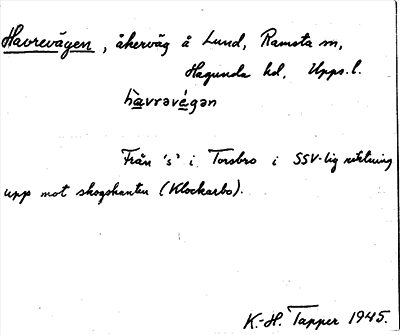 Havrevägen, åkerväg å Lund, Ramsta sn,
Hagunda hd, Upps. l.
havravégan
Från 's' i Torsbro i SSV-lig riktning
upp mot skogskanten (Klockarbo).
K.-H. Tapper 1945.